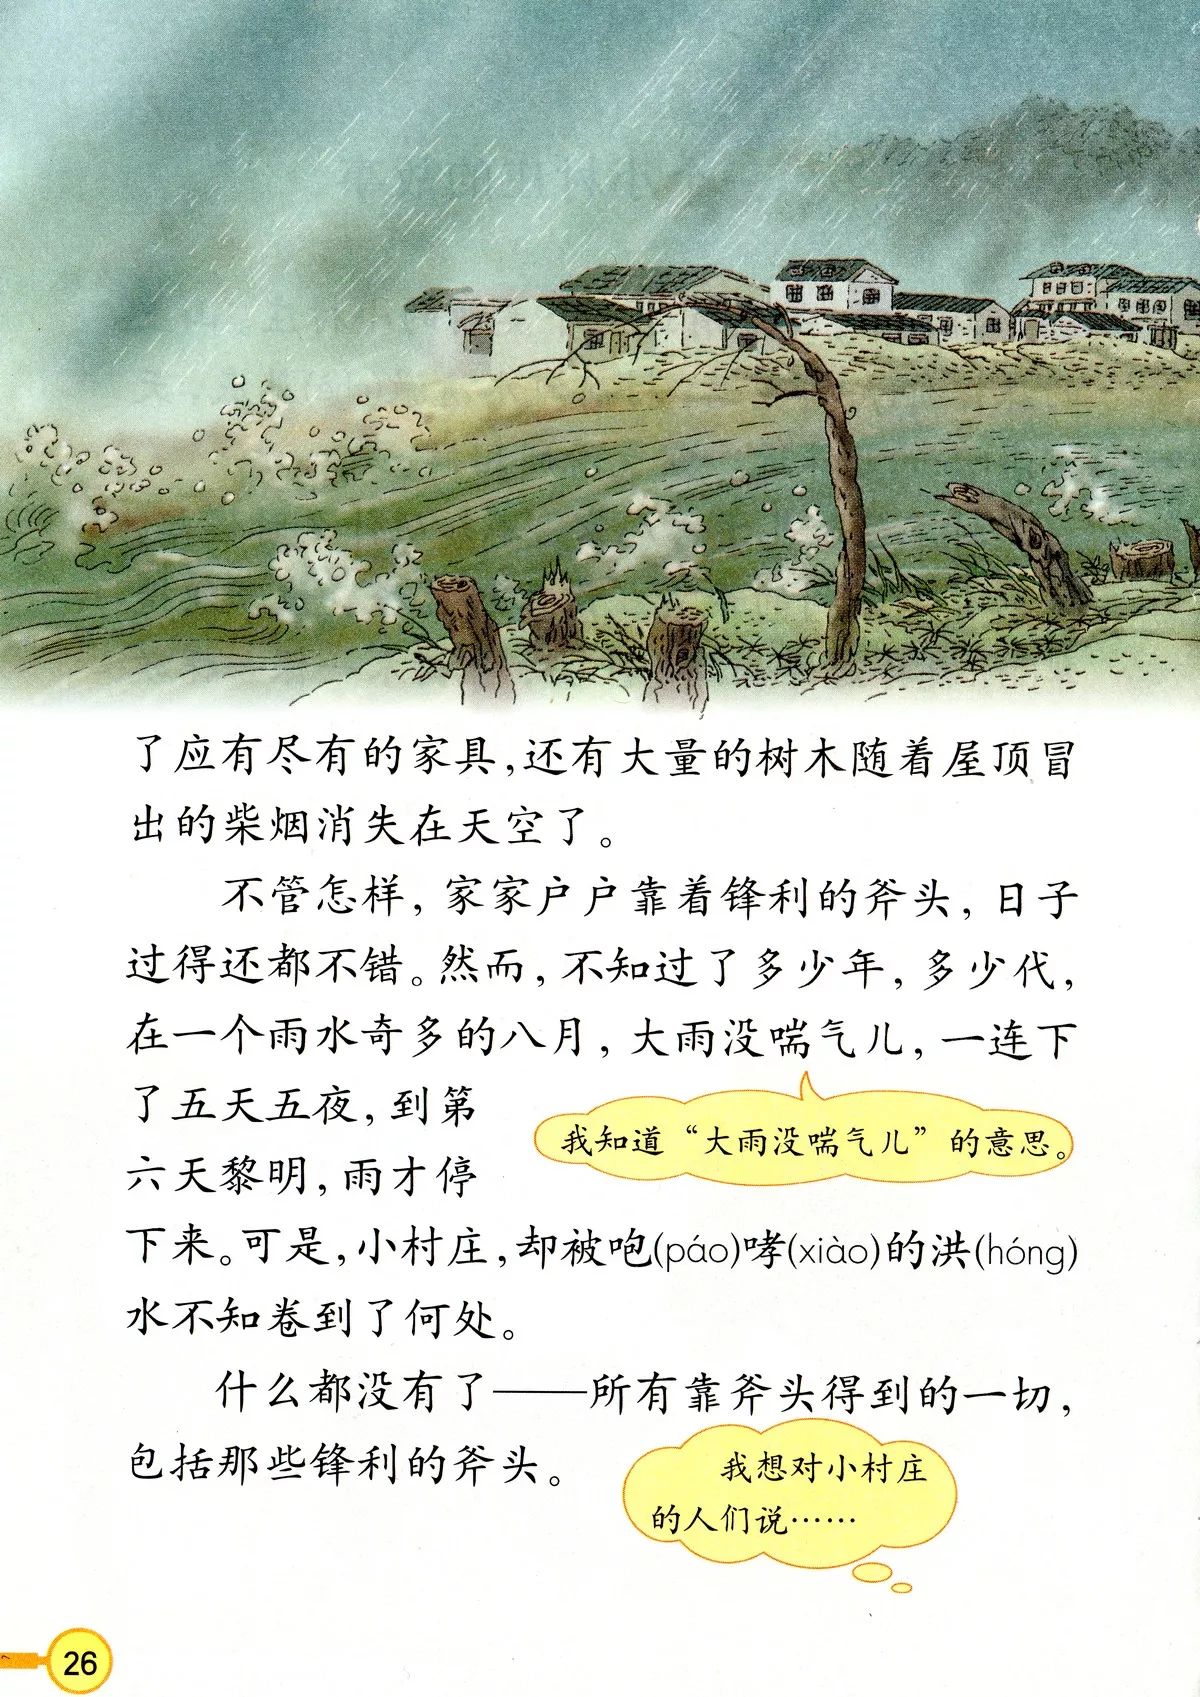 了应有尽有的家具,还有大量的树木随着屋顶冒
出的柴烟消失在天空了。
不管怎样,家家户户靠着锋利的斧头,日子
过得还都不错。然而,不知过了多少年,多少代,
在一个雨水奇多的八月,大雨没喘气儿,一连下
了五天五夜,到第
六天黎明,雨才停
我知道“大雨没喘气儿”的意思。
下来。可是,小村庄,却被咆(páo)哮(xiào)的洪(hóng)
水不知卷到了何处。
什么都没有了——所有靠斧头得到的一切,
包括那些锋利的斧头。
我想对小村庄
的人们说……
26